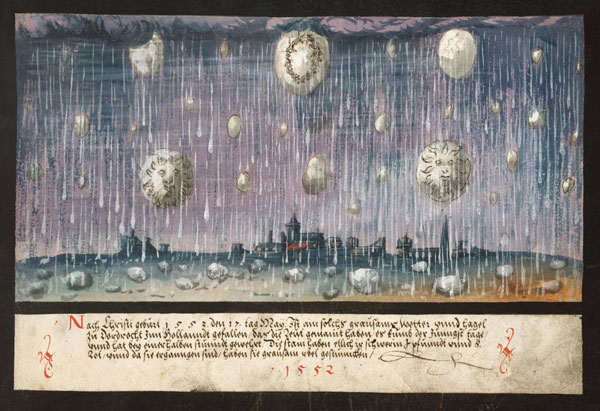 Nach Christi geburt 1552. den 17 tag May. Ist ain solchs grausams wetter vnnd hagel
zu Dordrecht Inn Hollandt gefallen, das die leut gemaint haben, es kume der Jungst tage
vnnd hat bey einer halben stund geweret. Die stain haben etlich ir schwerin pfundt vnnd 8.
Lot. vnnd da sie ergangen sind, haben sie grausam vbel gestuncken
1552